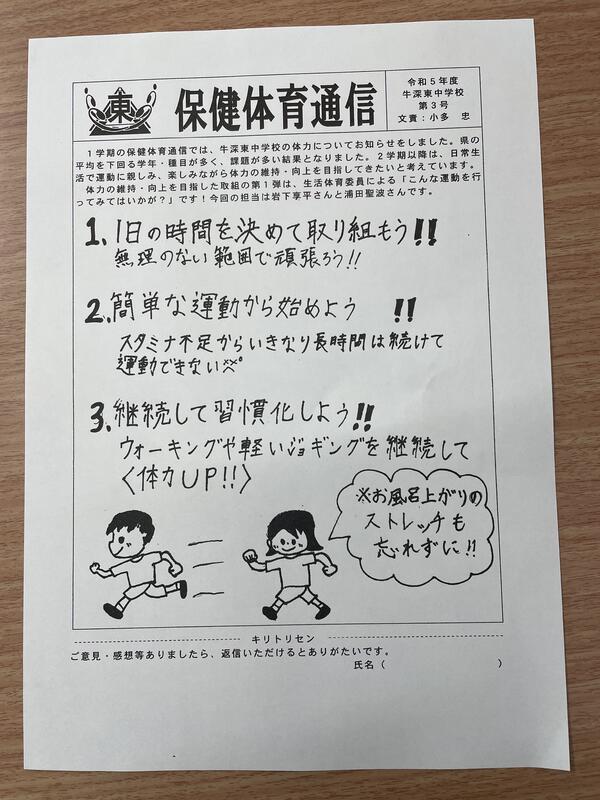 東
保健体育通信
令和5年度
牛深東中学校
第3号
文責:小多 忠
1学期の保健体育通信では、牛深東中学校の体力についてお知らせをしました。県の
平均を下回る学年・種目が多く、課題が多い結果となりました。2学期以降は、日常生
活で運動に親しみ、楽しみながら体力の維持・向上を目指してきたいと考えています。
体力の維持・向上を目指した取組の第1弾は、生活体育委員による「こんな運動を行
ってみてはいかが?」です!今回の担当は岩下享平さんと浦田聖波さんです。
1.1日の時間を決めて取り組もう!!
無理のない範囲で頑張ろう!!
2.簡単な運動から始めよう !!
スタミナ不足からいきなり長時間は続けて
運動できない
3.継続して習慣化しよう!!
ウォーキングや軽いジョギングを継続して
〈体力UP!!〉
※お風呂上がりの
ストレッチも
忘れずに!!
キリトリセン
ご意見・感想等ありましたら、返信いただけるとありがたいです。
氏名( )